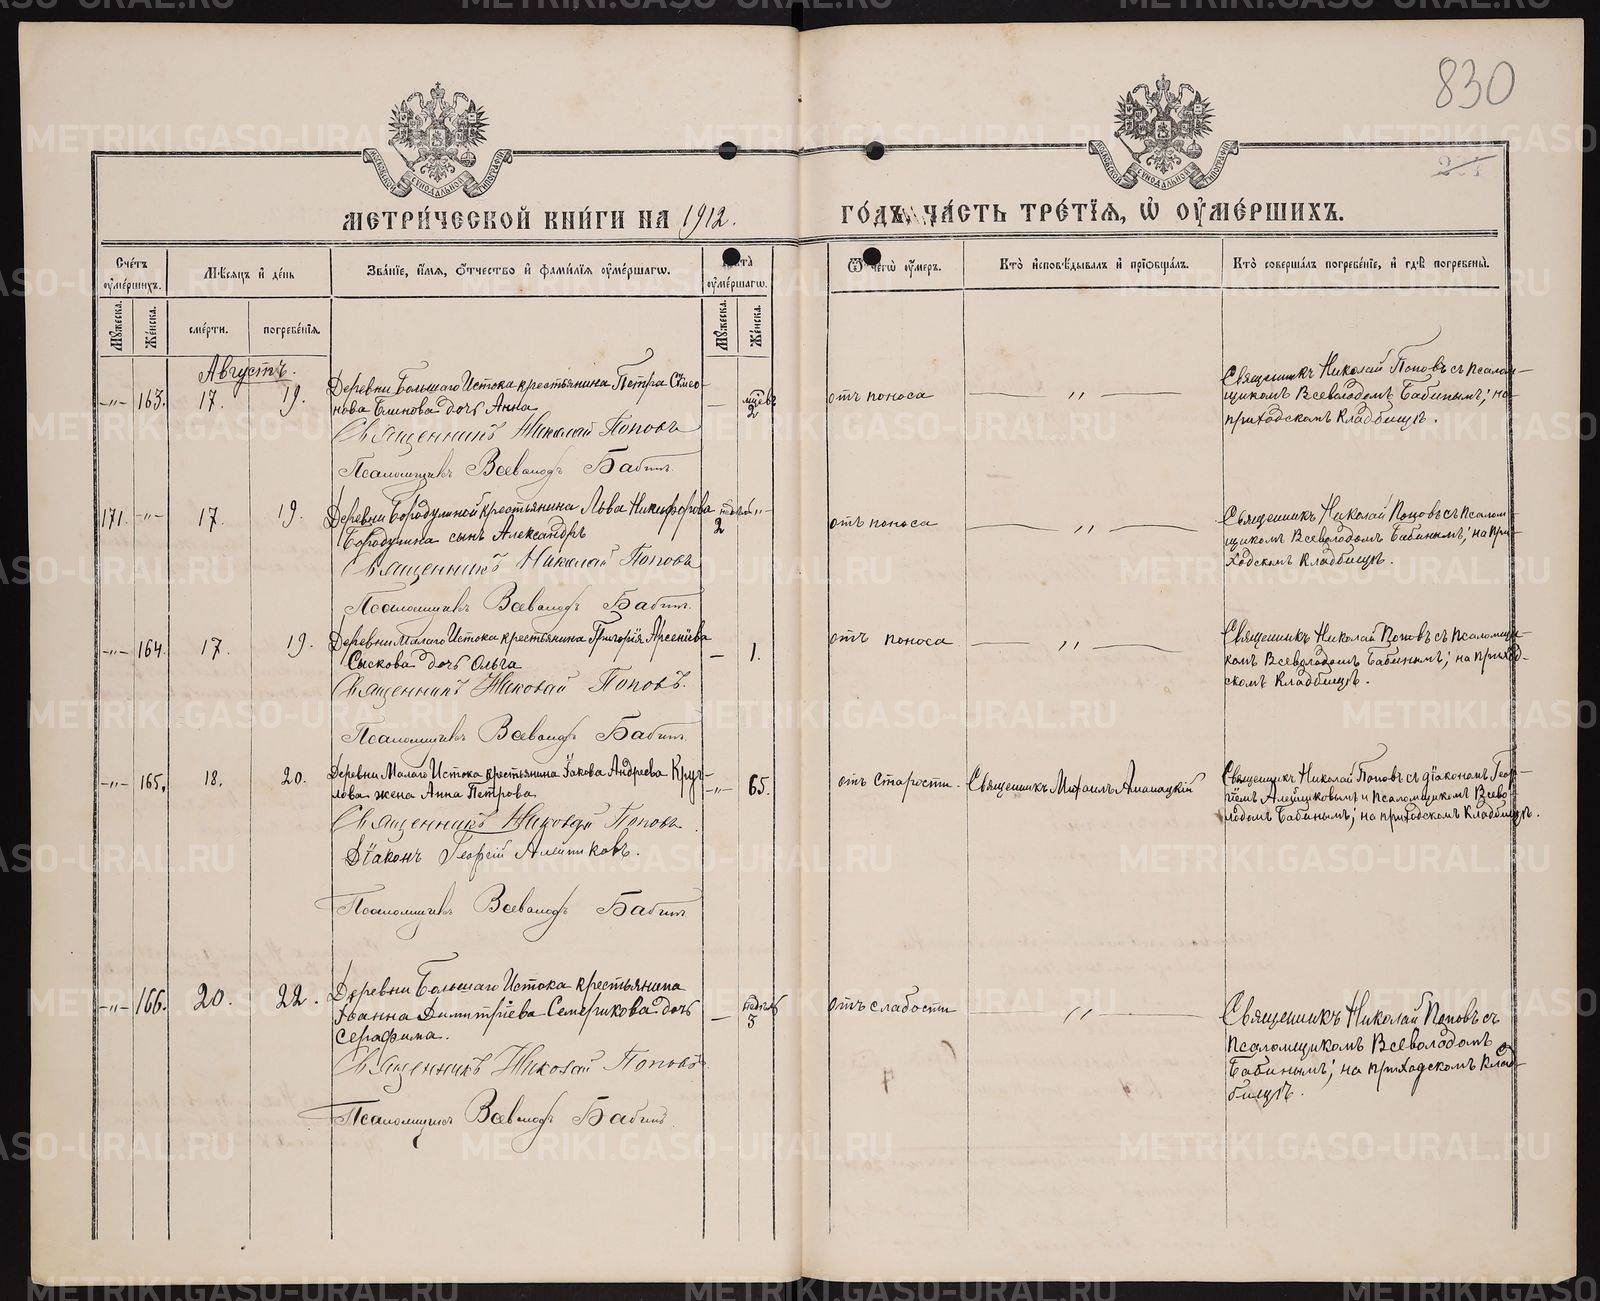 830
МЕТРИ́ЧЕСКОЙ КНИ́ГИ НА 1912.
ГО́ДЪ, ЧА́СТЬ ТРЕ́ТІѦ, Ѡ҆ ОУ҆МЕ́РШИХЪ.
Счéтъ оу҆мéршихъ.
Мѣ́сяцъ и҆ дéнь
Звáнїе, и҆́мѧ, ѻ҆́тчество и҆ фами́лїѧ оу҆мéршагѡ.
Лѣ́та оу҆мéршагѡ.
Ѿ чегѡ̀ оу҆́меръ.
Кто̀ и҆сповѣ́дывалъ и҆ прїѡбщáлъ.
Кто̀ совершáлъ погребéнїе, и҆ гдѣ̀ погребены̀.
Мꙋ́жеска.
Жéнска.
смéрти.
погребéнїѧ.
Мꙋ́жеска.
Жéнска.
Августъ.
—„— 163. 17. 19.
Деревни Большаго Истока крестьянина Петра Симео-
нова Блинова дочь Анна
Священникъ Николай Поповъ
Псаломщикъ Всеволодъ Бабинъ.
— мѣсяцевъ 2
отъ поноса
— „ —
Священникъ Николай Поповъ съ псалом-
щикомъ Всеволодомъ Бабинымъ; на
приходскомъ кладбищѣ.
171. —„— 17. 19.
Деревни Бородулиной крестьянина Льва Никифорова
Бородулина сынъ Александръ
Священникъ Николай Поповъ
Псаломщикъ Всеволодъ Бабинъ.
недѣль 2 —„—
отъ поноса
— „ —
Священникъ Николай Поповъ съ псалом-
щикомъ Всеволодомъ Бабинымъ; на при-
ходскомъ кладбищѣ.
—„— 164. 17. 19.
Деревни Малаго Истока крестьянина Григорія Арсеніева
Сыскова дочь Ольга
Священникъ Николай Поповъ.
Псаломщикъ Всеволодъ Бабинъ.
— 1.
отъ поноса
— „ —
Священникъ Николай Поповъ съ псаломщи-
комъ Всеволодомъ Бабинымъ; на приход-
скомъ кладбищѣ.
—„— 165. 18. 20.
Деревни Малаго Истока крестьянина Іакова Андреева Круг-
лова жена Анна Петрова
Священникъ Николай Поповъ
Діаконъ Георгій Алейниковъ.
Псаломщикъ Всеволодъ Бабинъ
—„— 65.
отъ старости.
Священникъ Михаилъ
Священникъ Николай Поповъ съ діакономъ Геор-
гіемъ Алейниковымъ и псаломщикомъ Всево-
лодомъ Бабинымъ; на приходскомъ кладбищѣ.
—„— 166. 20. 22.
Деревни Большаго Истока крестьянина
Іоанна Димитріева Семерикова дочь
Серафима.
Священникъ Николай Поповъ
Псаломщикъ Всеволодъ Бабинъ.
— недѣль 3
отъ слабости
— „ —
Священникъ Николай Поповъ съ
псаломщикомъ Всеволодомъ
Бабинымъ; на приходскомъ клад-
бищѣ.
METRIKI.GASO-URAL.RU